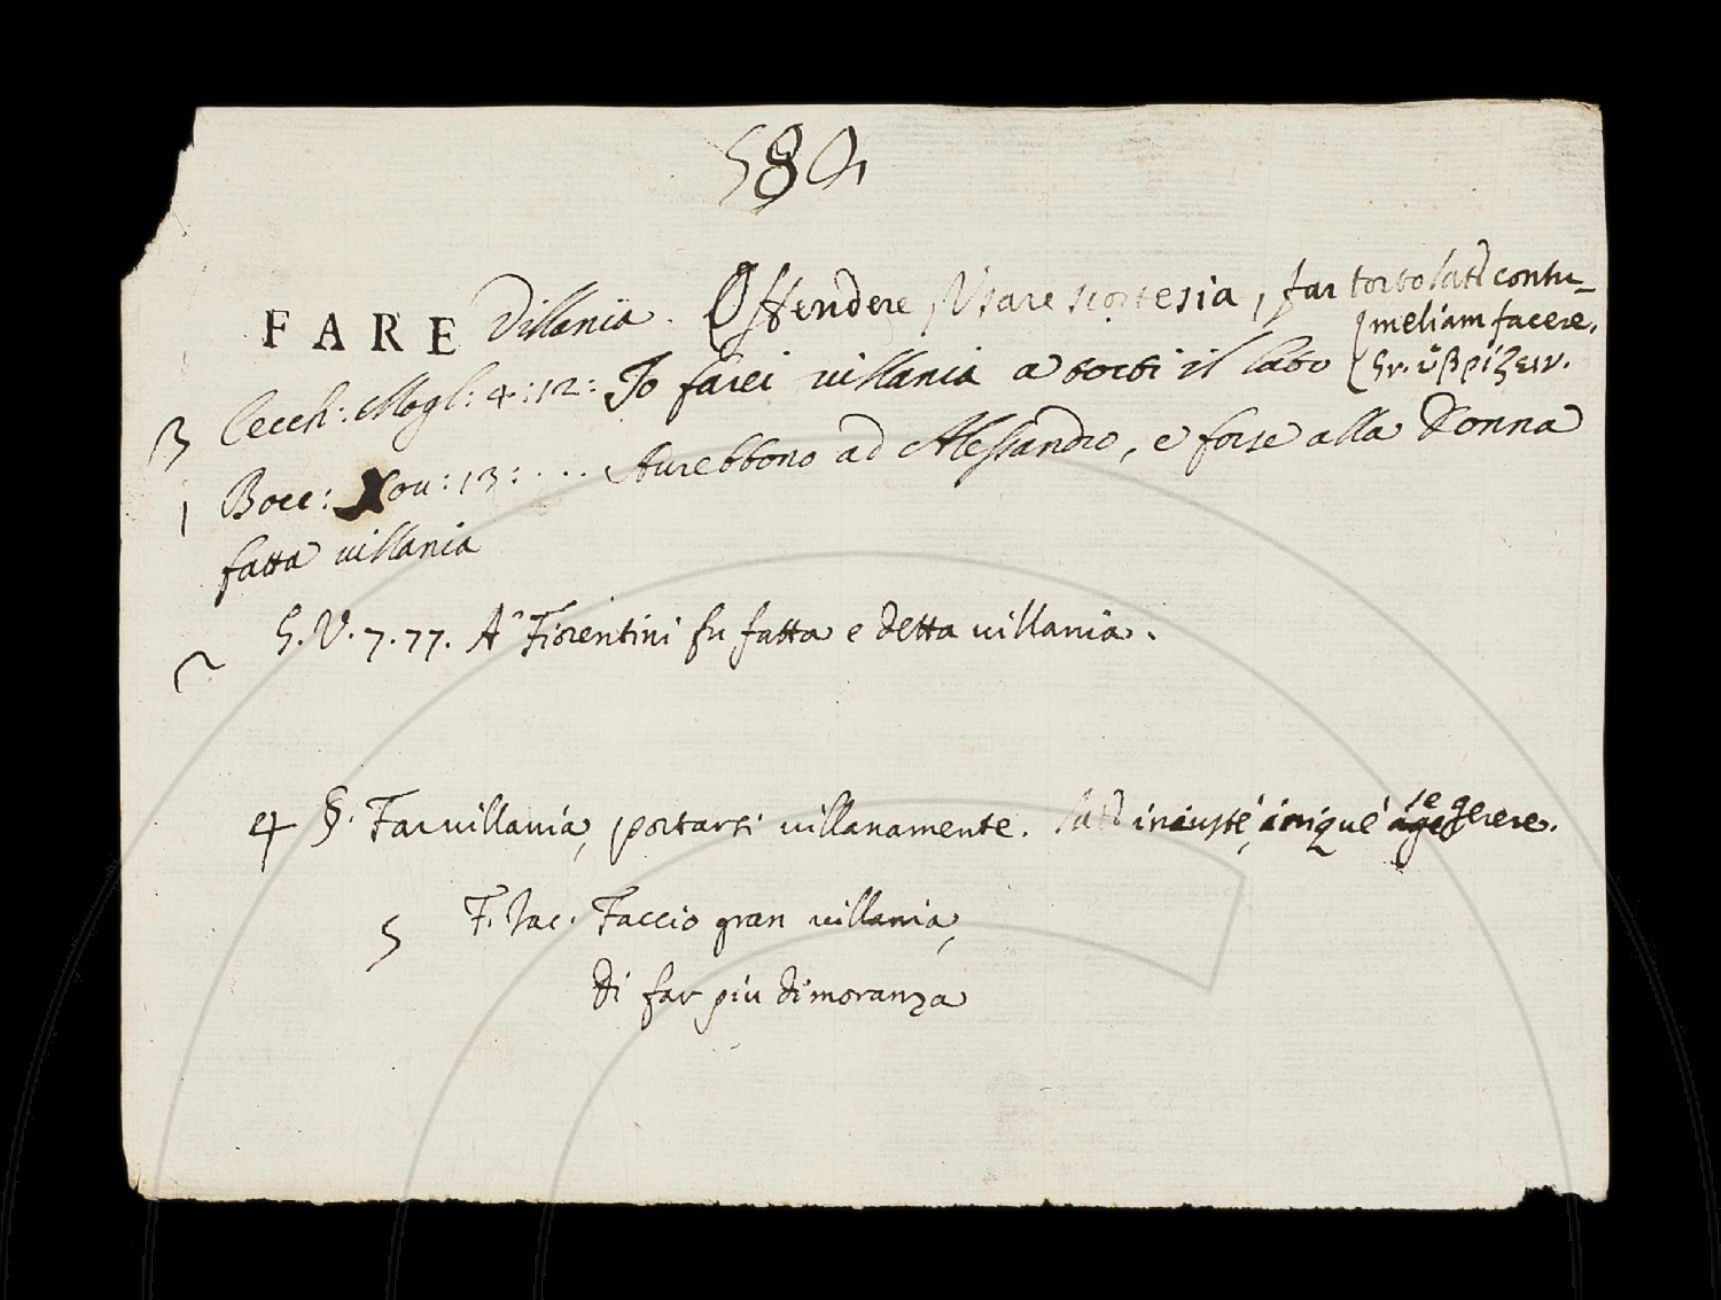 584
FARE Villania. Offendere, Usare scortesia, far torto lat. contu-
meliam facere.
3 Cecch: Mogl: 4:12: Io farei villania a torti il lato gr. ὑβρίζειν.
1 Bocc: Nov: 13: ... Avrebbono ad Alessandro, e forse alla Donna
fatta villania
2 G. V. 7. 77. A' Fiorentini fu fatta e detta villania.
4 §. Far villania, portarsi villanamente. lat. iniustè, iniquè se gerere.
5 F. Iac. Faccio gran villania,
di far più dimoranza